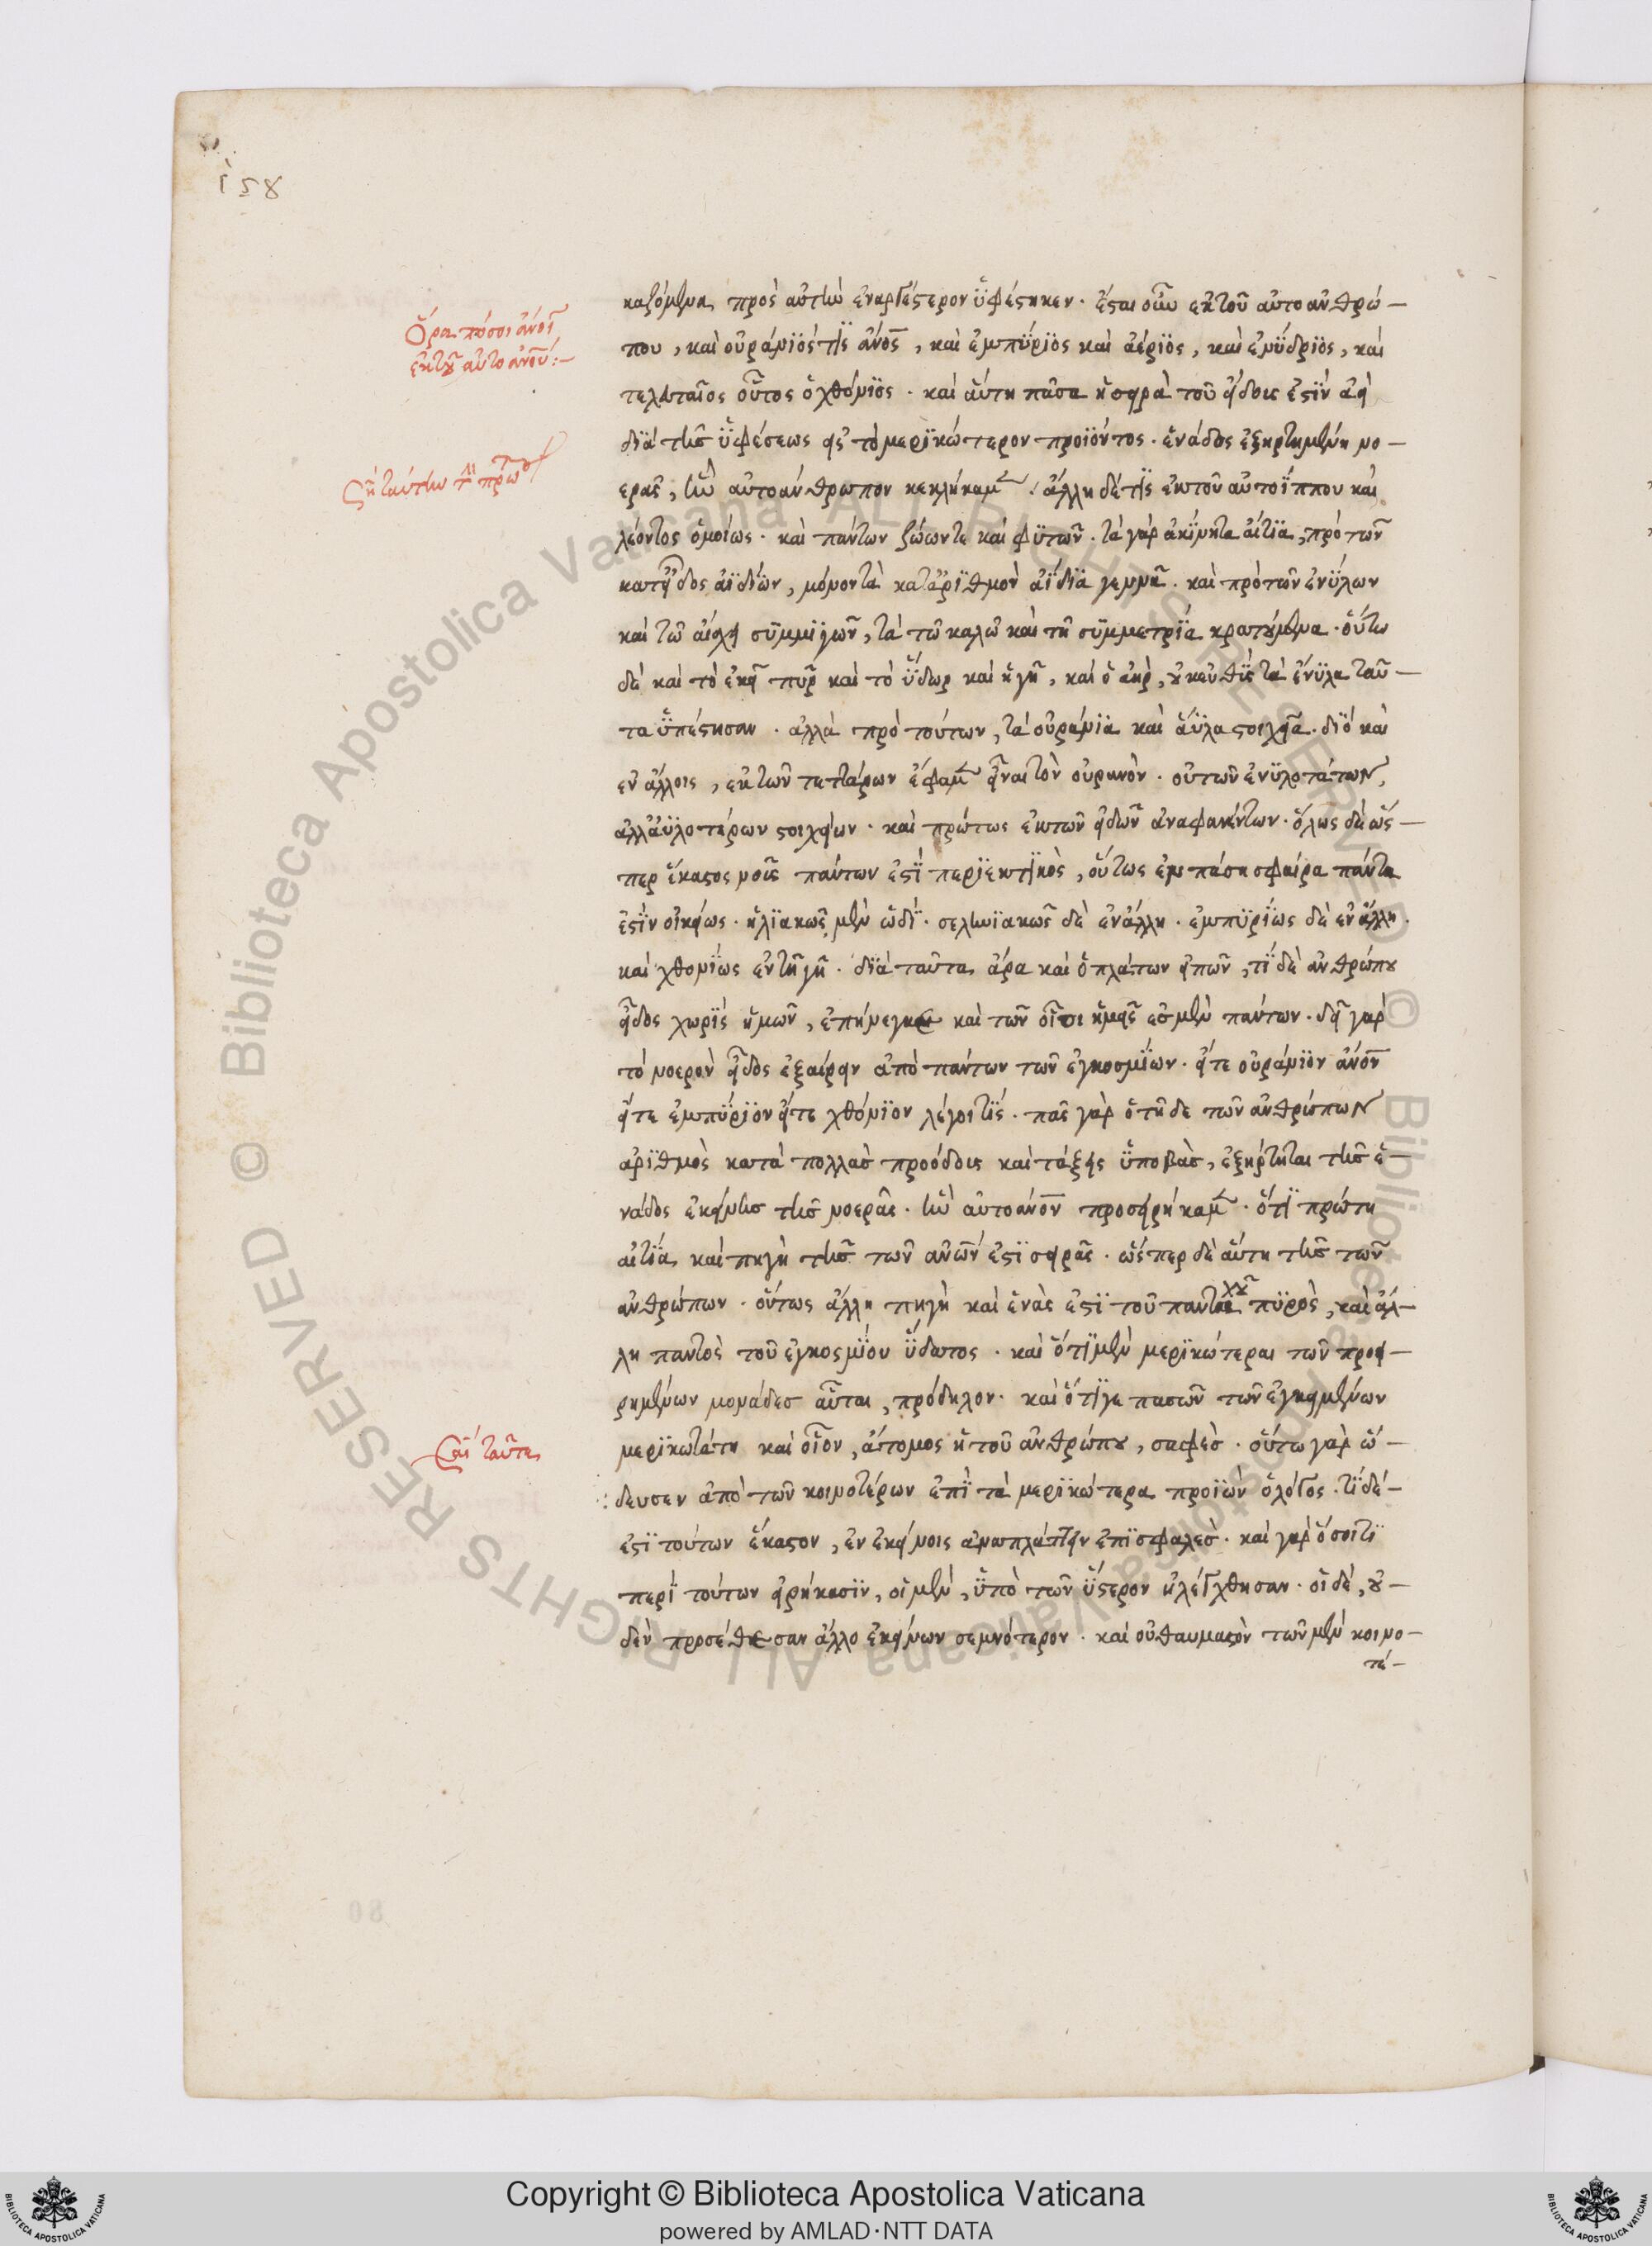 καζόμενα, πρὸς αὐτὴν ἐναργέστερον ὑφέστηκεν. ἔσται οὖν ἐκ τοῦ αὐτοανθρώ-
Ὅρα πόσοι ἄνοι
που, καὶ οὐράνιός τις ἄνος, καὶ ἐμπύριος καὶ ἀέριος, καὶ ἐνύδριος, καὶ
ἐκ τοῦ αὐτοανου:-
τελευταῖος οὗτος ὁ χθόνιος. καὶ αὕτη πᾶσα ἡ σειρὰ τοῦ εἴδους ἐστὶν ἀεὶ
διὰ τῆς ὑφέσεως εἰς τὸ μερικώτερον προϊόντος. ἑνάδος ἐξηρτημένη νο-
ταύτην
ερᾶς, ἣν αὐτοάνθρωπον κεκλήκαμεν. ἄλλη δέ τις ἐκ τοῦ αὐτοΐππου καὶ
λέοντος ὁμοίως. καὶ πάντων ζώων τε καὶ φυτῶν. τὰ γὰρ ἀκίνητα αἴτια, πρὸ τῶν
κατ' εἶδος ἀϊδίων, μόνον τὰ κατ' ἀριθμὸν ἀΐδια γεννᾷ. καὶ πρὸ τῶν ἐνύλων
καὶ τῷ αἴσχει συμμιγῶν, τὰ τῷ καλῷ καὶ τῇ συμμετρίᾳ κρατούμενα. οὕτω
δὲ καὶ τὸ ἐκεῖ πῦρ καὶ τὸ ὕδωρ καὶ ἡ γῆ, καὶ ὁ ἀὴρ, οὐκ εὐθὺς τὰ ἔνυλα ταῦ-
τα ὑπέστησαν. ἀλλὰ πρὸ τούτων, τὰ οὐράνια καὶ ἄϋλα στοιχεῖα. διὸ καὶ
ἐν ἄλλοις, ἐκ τῶν τεττάρων ἔφαμεν εἶναι τὸν οὐρανὸν. οὐ τῶν ἐνυλοτάτων,
ἀλλ' ἀϋλοτέρων στοιχείων. καὶ πρώτως ἐκ τῶν εἰδῶν ἀναφανέντων. ὅλως δὲ ὥς-
περ ἕκαστος νοῦς πάντων ἐστὶ περιεκτικὸς, οὕτως ἐν πάσῃ σφαίρᾳ πάντα
ἐστὶν οἰκείως. ἡλιακῶς μὲν ὡδὶ. σεληνιακῶς δὲ ἐν ἄλλη. ἐμπυρίως δὲ ἐν ἄλλη.
καὶ χθονίως ἐν τῇ γῇ. διὰ ταῦτα ἄρα καὶ ὁ πλάτων εἰπὼν, τί δὲ ἀνθρώπου
εἶδος χωρὶς ἡμῶν, ἐπήνεγκε καὶ τῶν οἷοι ἡμεῖς ἐσμὲν πάντων. δεῖ γὰρ
τὸ νοερὸν εἶδος ἐξαίρειν ἀπὸ πάντων τῶν ἐγκοσμίων. εἴτε οὐράνιον ἄνον
εἴτε ἐμπύριον εἴτε χθόνιον λέγοι τίς. πᾶς γὰρ ὁ τῇδε τῶν ἀνθρώπων
ἀριθμὸς κατὰ πολλὰς προόδους καὶ τάξεις ὑποβὰς, ἐξήρτηται τῆς ἑ-
νάδος ἐκείνης τῆς νοερᾶς. ἣν αὐτοάνον προσειρήκαμεν. ὅτι πρώτη
αἰτία, καὶ πηγὴ τῆς τῶν ἀνων ἐστὶ σειρᾶς. ὥσπερ δὲ αὕτη τῆς τῶν
ἀνθρώπων. οὕτως ἄλλη πηγὴ καὶ ἑνὰς ἐστὶ τοῦ παντὸς πυρὸς, καὶ ἄλ-
λη παντὸς τοῦ ἐγκοσμίου ὕδατος. καὶ ὅτι μὲν μερικώτεραι τῶν προει-
ρημένων μονάδες αὗται, πρόδηλον. καὶ ὅτι γε πασῶν τῶν ἐγκειμένων
ταῦτα
μερικωτάτη καὶ οἷον, ἄτομος ἡ τοῦ ἀνθρώπου, σαφὲς. οὕτω γὰρ ὥ-
δευσεν ἀπὸ τῶν κοινοτέρων ἐπὶ τὰ μερικώτερα προϊὼν ὁ λόγος. τί δέ-
ἐστι τούτων ἕκαστον, ἐν ἐκείνοις ἀναπλάττειν ἐπισφαλὲς. καὶ γὰρ ὅσοι τι
περὶ τούτων εἰρήκασιν, οἱ μὲν, ὑπὸ τῶν ὕστερον ἠλέγχθησαν. οἱ δὲ, οὐ-
δὲν προσέθεσαν ἄλλο ἐκείνων σεμνότερον. καὶ οὐ θαυμαστὸν τῶν μὲν κοινο-
τέ-
Copyright © Biblioteca Apostolica Vaticana
powered by AMLAD·NTT DATA